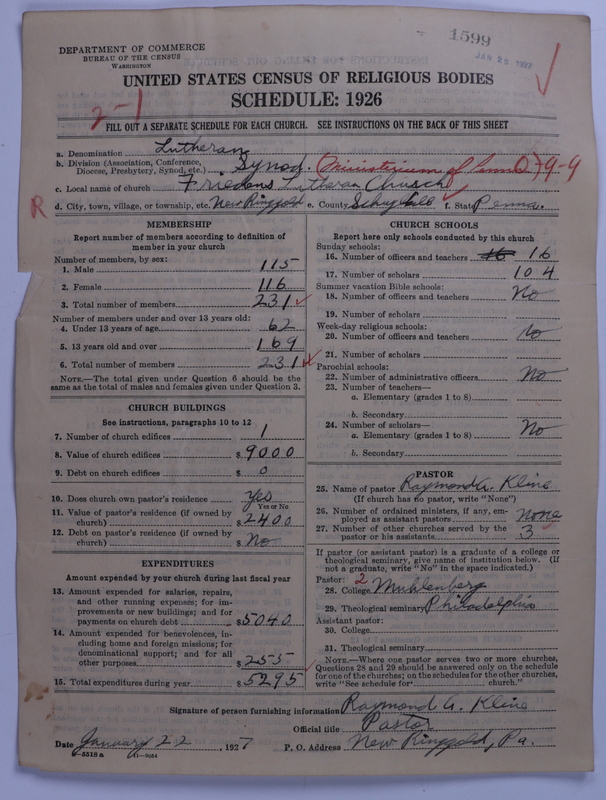 1599
JAN 25 1927
DEPARTMENT OF COMMERCE
BUREAU OF THE CENSUS
WASHINGTON
UNITED STATES CENSUS OF RELIGIOUS BODIES
SCHEDULE: 1926
2-1
FILL OUT A SEPARATE SCHEDULE FOR EACH CHURCH. SEE INSTRUCTIONS ON THE BACK OF THIS SHEET
a. Denomination Lutheran
b. Division (Association, Conference, Diocese, Presbytery, Synod, etc.) Synod. (Ministerium of Penna) 9-9
c. Local name of church Friedens Lutheran Church
R d. City, town, village, or township, etc. New Ringgold e. County Schuylkill f. State Penna.
MEMBERSHIP
Report number of members according to definition of member in your church
Number of members, by sex:
1. Male 115
2. Female 116
3. Total number of members 231
Number of members under and over 13 years old:
4. Under 13 years of age 62
5. 13 years old and over 169
6. Total number of members 231
NOTE.—The total given under Question 6 should be the same as the total of males and females given under Question 3.
CHURCH BUILDINGS
See instructions, paragraphs 10 to 12
7. Number of church edifices 1
8. Value of church edifices $ 9000
9. Debt on church edifices $ 0
10. Does church own pastor's residence Yes
Yes or No
11. Value of pastor's residence (if owned by church) $ 2400
12. Debt on pastor's residence (if owned by church) $ No
EXPENDITURES
Amount expended by your church during last fiscal year
13. Amount expended for salaries, repairs, and other running expenses; for improvements or new buildings; and for payments on church debt $ 5040
14. Amount expended for benevolences, including home and foreign missions; for denominational support; and for all other purposes $ 255
15. Total expenditures during year $ 5295
CHURCH SCHOOLS
Report here only schools conducted by this church
Sunday schools:
16. Number of officers and teachers 16 16
17. Number of scholars 104
Summer vacation Bible schools:
18. Number of officers and teachers No
19. Number of scholars
Week-day religious schools:
20. Number of officers and teachers No
21. Number of scholars
Parochial schools:
22. Number of administrative officers No
23. Number of teachers—
a. Elementary (grades 1 to 8)
b. Secondary
24. Number of scholars— No
a. Elementary (grades 1 to 8)
b. Secondary
PASTOR
25. Name of pastor Raymond A. Kline
(If church has no pastor, write "None")
26. Number of ordained ministers, if any, employed as assistant pastors None
27. Number of other churches served by the pastor or his assistants 3
If pastor (or assistant pastor) is a graduate of a college or theological seminary, give name of institution below. (If not a graduate, write "No" in the space indicated.)
Pastor: 2
28. College Muhlenberg
29. Theological seminary Philadelphia
Assistant pastor:
30. College
31. Theological seminary
NOTE.—Where one pastor serves two or more churches, Questions 28 and 29 should be answered only on the schedule for one of the churches; on the schedules for the other churches, write "See schedule for church."
Signature of person furnishing information Raymond A. Kline
Official title Pastor
Date January 22, 1927 P. O. Address New Ringgold, Pa.
8-5518 a 11-9084